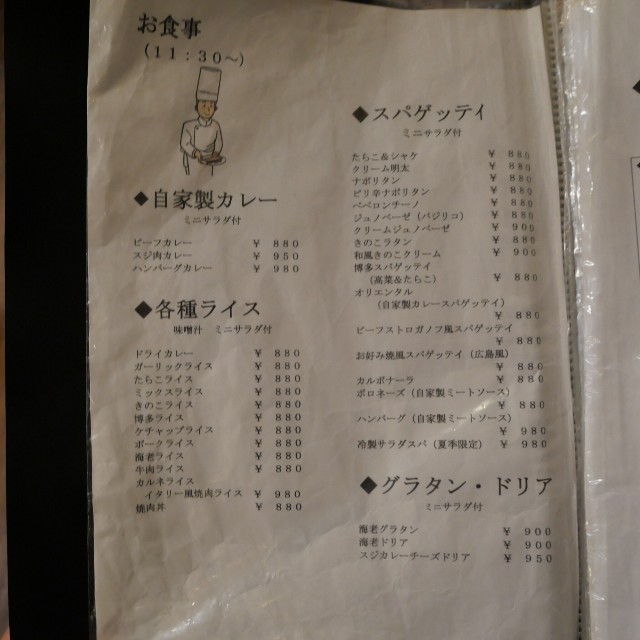 お食事
(11:30~)
◆自家製カレー
ミニサラダ付
ビーフカレー ￥ 880
スジ肉カレー ￥ 950
ハンバーグカレー ￥ 980
◆各種ライス
味噌汁 ミニサラダ付
ドライカレー ￥ 880
ガーリックライス ￥ 880
たらこライス ￥ 880
ミックスライス ￥ 880
きのこライス ￥ 880
博多ライス ￥ 880
ケチャップライス ￥ 880
ポークライス ￥ 880
海老ライス ￥ 880
牛肉ライス ￥ 880
カルネライス
イタリー風焼肉ライス ￥ 980
焼肉丼 ￥ 880
◆スパゲッテイ
ミニサラダ付
たらこ&シャケ ￥ 880
クリーム明太 ￥ 880
ナポリタン ￥ 880
ピリ辛ナポリタン ￥ 880
ペペロンチーノ ￥ 880
ジュノベーゼ (バジリコ) ￥ 880
クリームジュノベーゼ ￥ 900
きのこラタン ￥ 880
和風きのこクリーム ￥ 900
博多スパゲッテイ
(高菜&たらこ) ￥ 880
オリエンタル
(自家製カレースパゲッテイ)
￥ 880
ビーフストロガノフ風スパゲッテイ
￥ 880
お好み焼風スパゲッテイ (広島風)
￥ 880
カルボナーラ ￥ 880
ボロネーズ (自家製ミートソース)
￥ 880
ハンバーグ (自家製ミートソース)
￥ 980
冷製サラダスパ (夏季限定) ￥ 980
◆グラタン・ドリア
ミニサラダ付
海老グラタン ￥ 900
海老ドリア ￥ 900
スジカレーチーズドリア ￥ 950